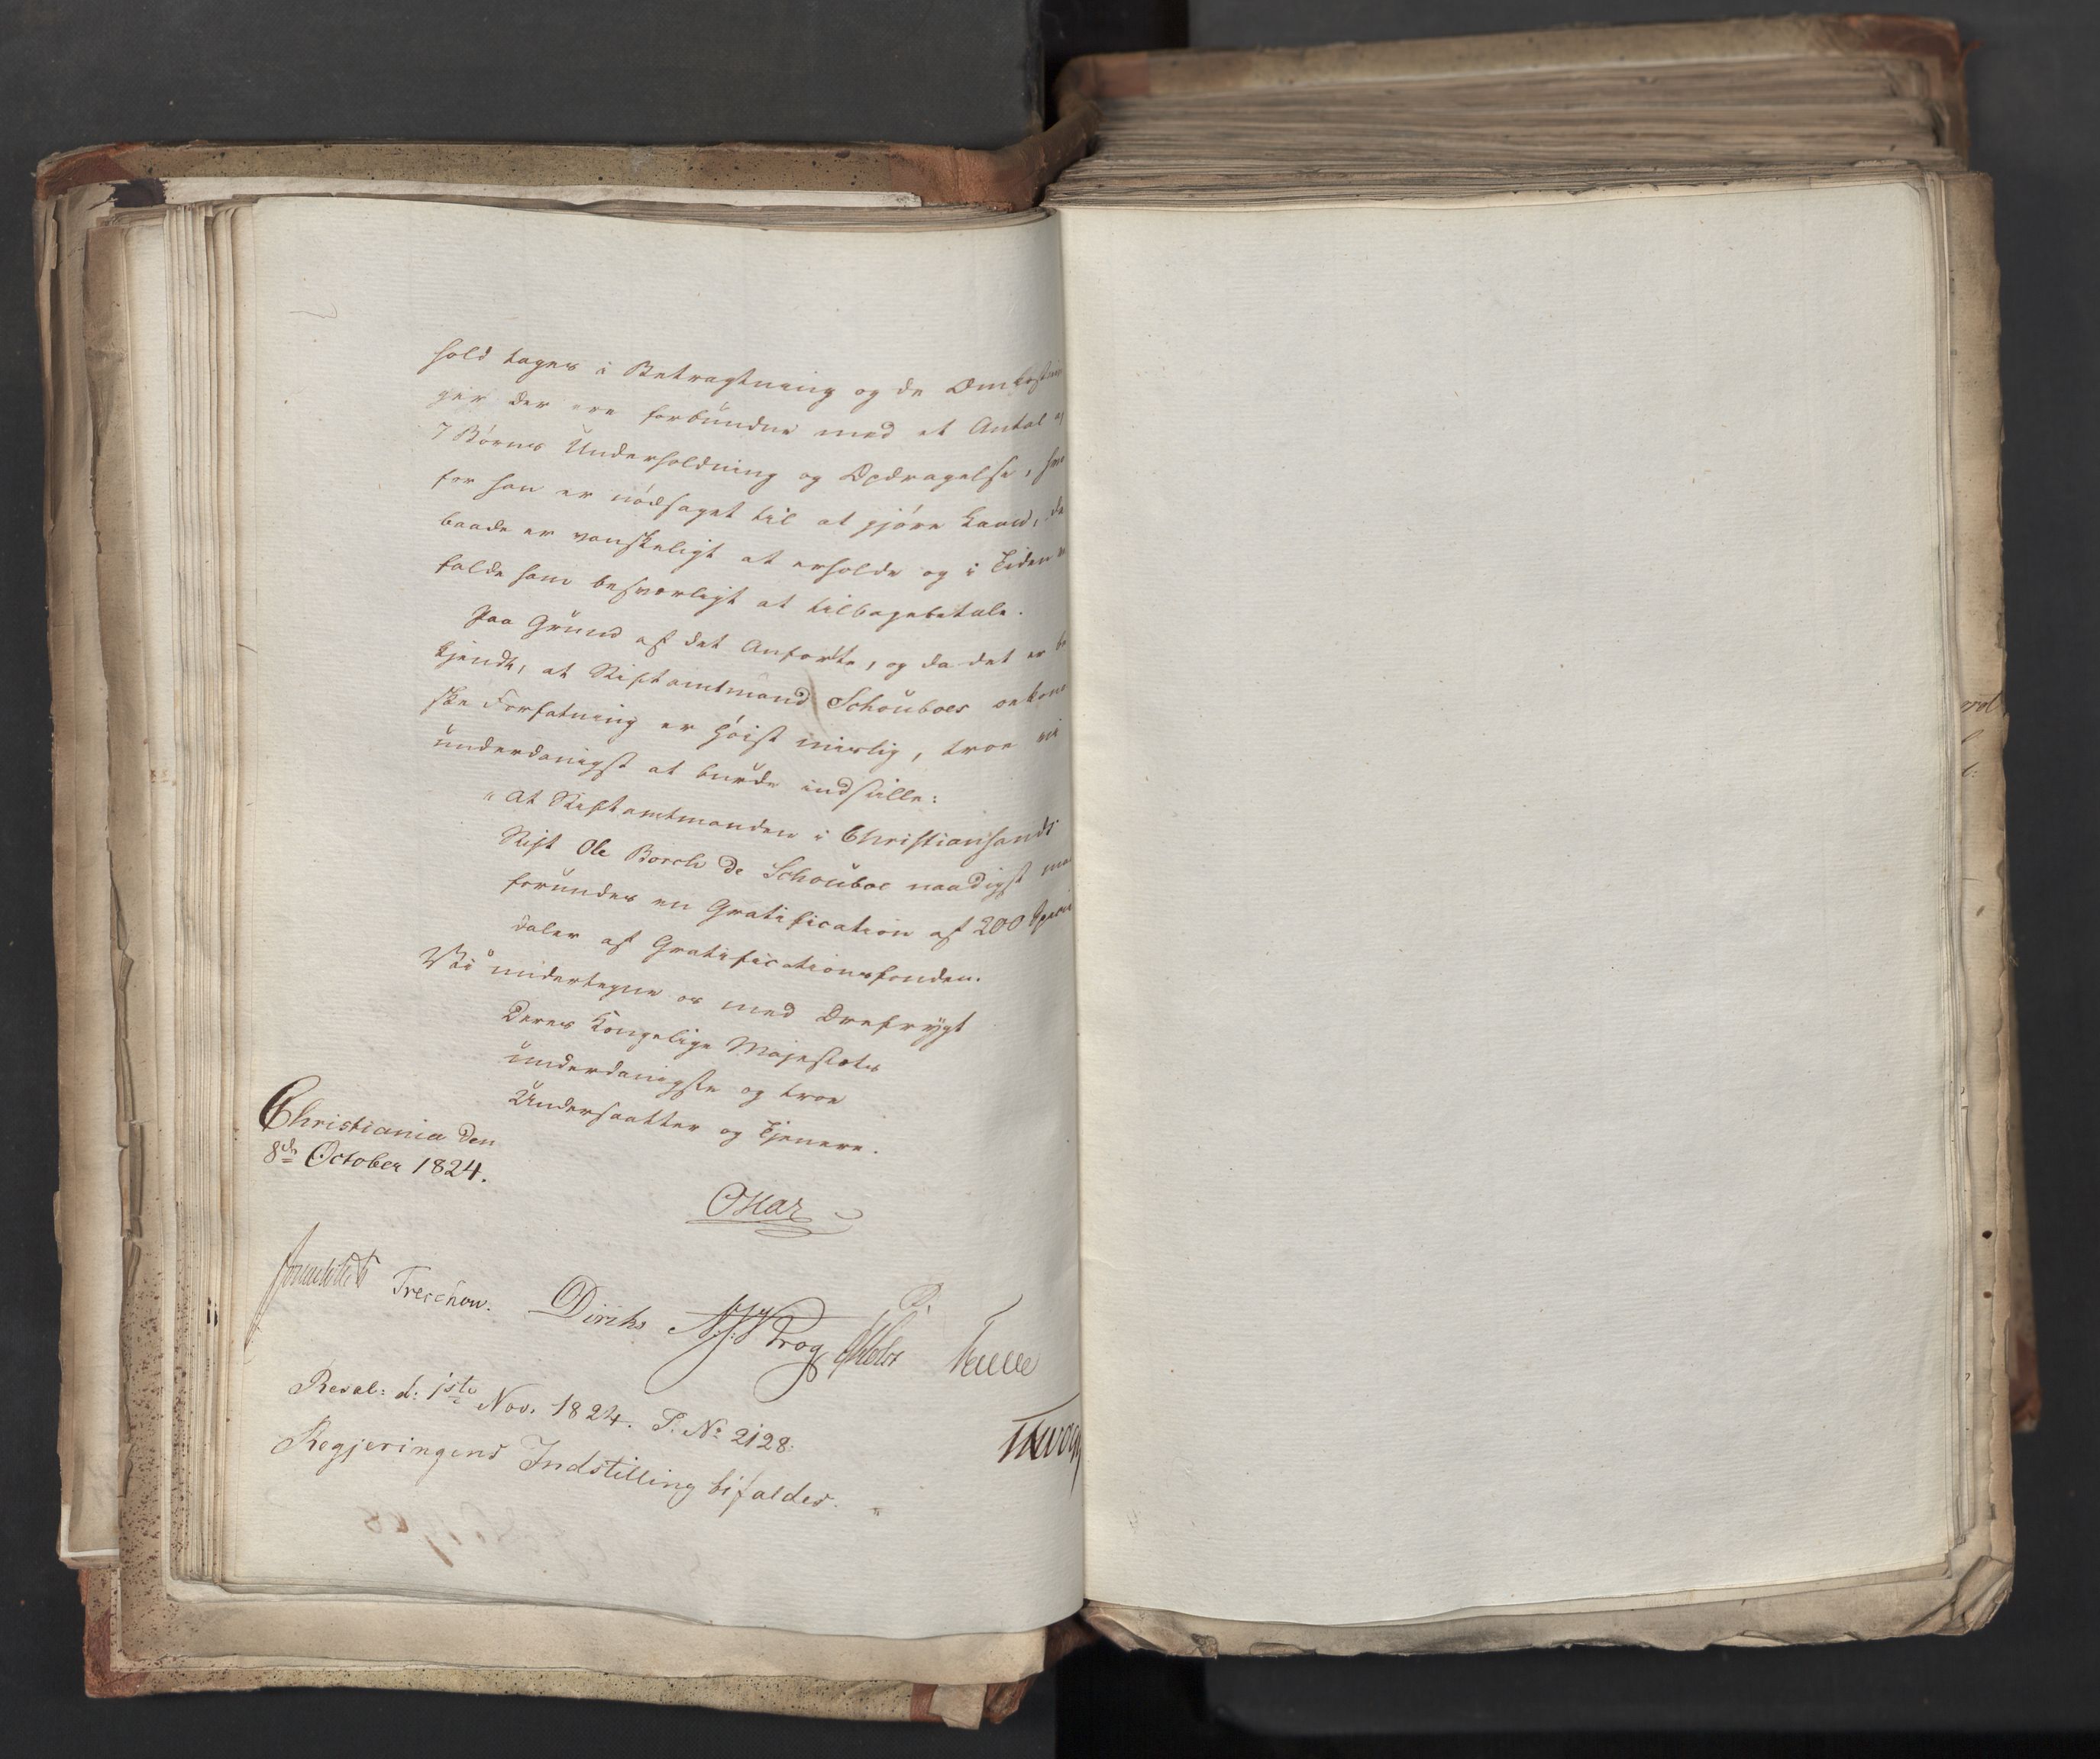 hold tages i Betragtning og de Omkostnin
ger der ere forbundne med et Antal af
7 Børns Underholdning og Opdragelse, hvor
for han er nødsaget til at gjøre Laan, der
baade er vanskeligt at erholde og i Tiden vil
falde ham besværligt at tilbagebetale.
Paa Grund af det Anførte, og da det er be
kjendt, at Stiftamtmand Schouboes oekonomi
ske Forfatning er høist mislig, troe vi
underdanigst at burde indstille:
"At Stiftamtmanden i Christiansands
Stift Ole Borch de Schouboe naadigst maa
forundes en Gratification af 200 Specie
daler af Gratificationsfonden.
Vi undertegne os med Ærefrygt
Deres Kongelige Majestæts
underdanigste og troe
Undersaatter og Tjenere.
Christiania den
8de October 1824.
Oscar
Sommerhielm Treschow. Diriks Krog Holst
Resol: d: 1ste Nov. 1824. P. No 2128.
Regjeringens Indstilling bifaldes.